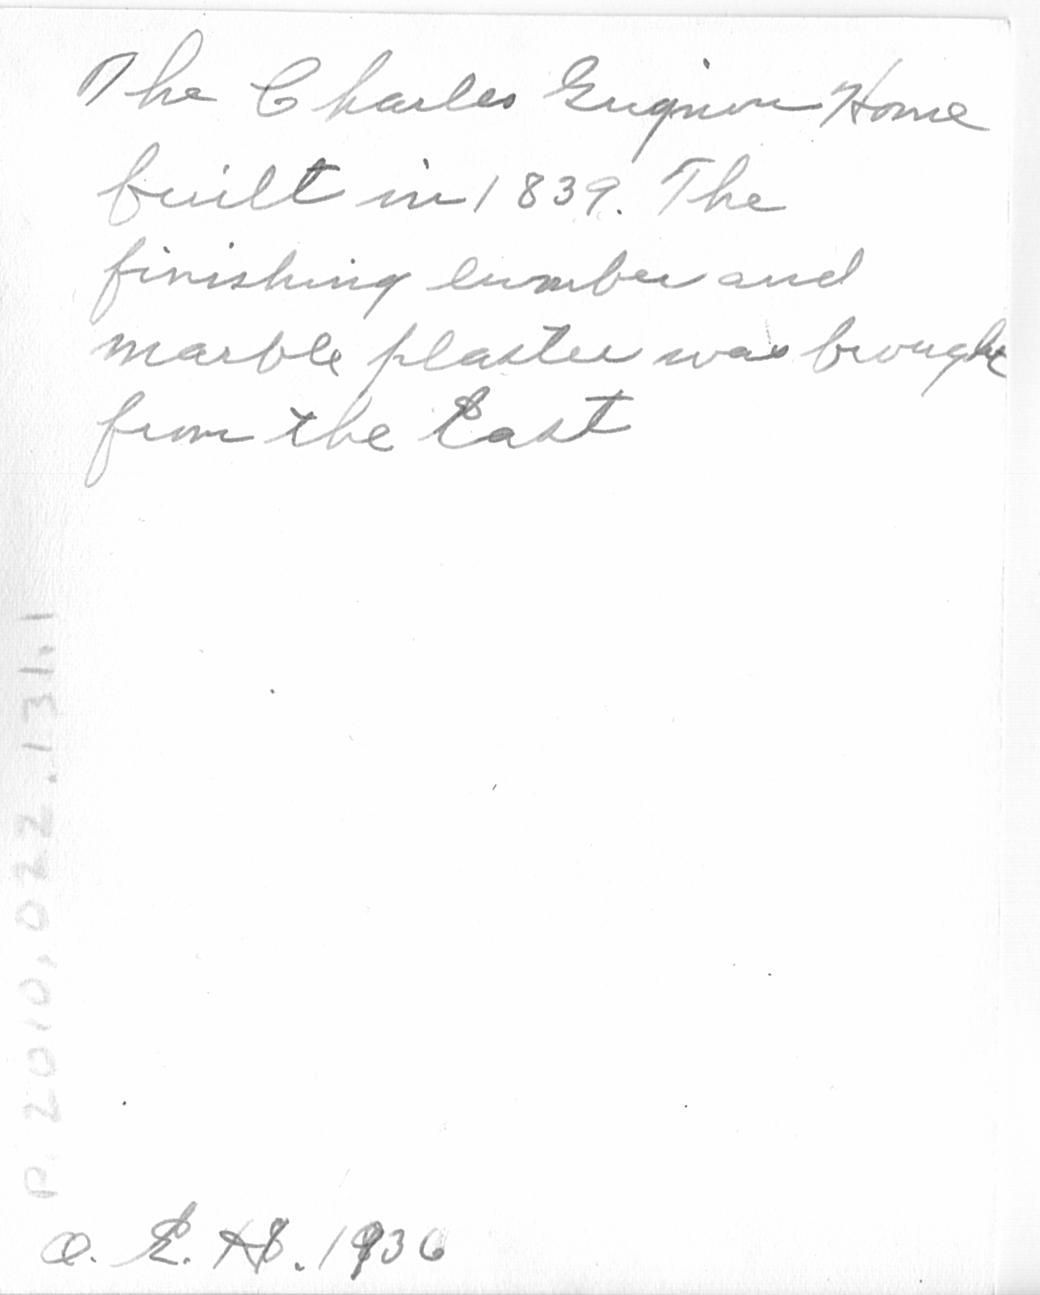 The Charles Grignon Home
built in 1839. The
finishing lumber and
marble plaster was brought
from the East
P. 2010.022.131.1
a. E. H. 1936